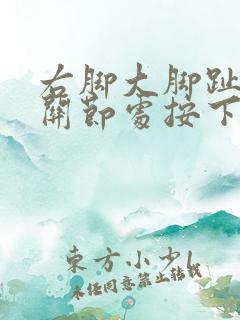 右脚大脚趾
關節處按下
東方小少
未经同意禁止转载